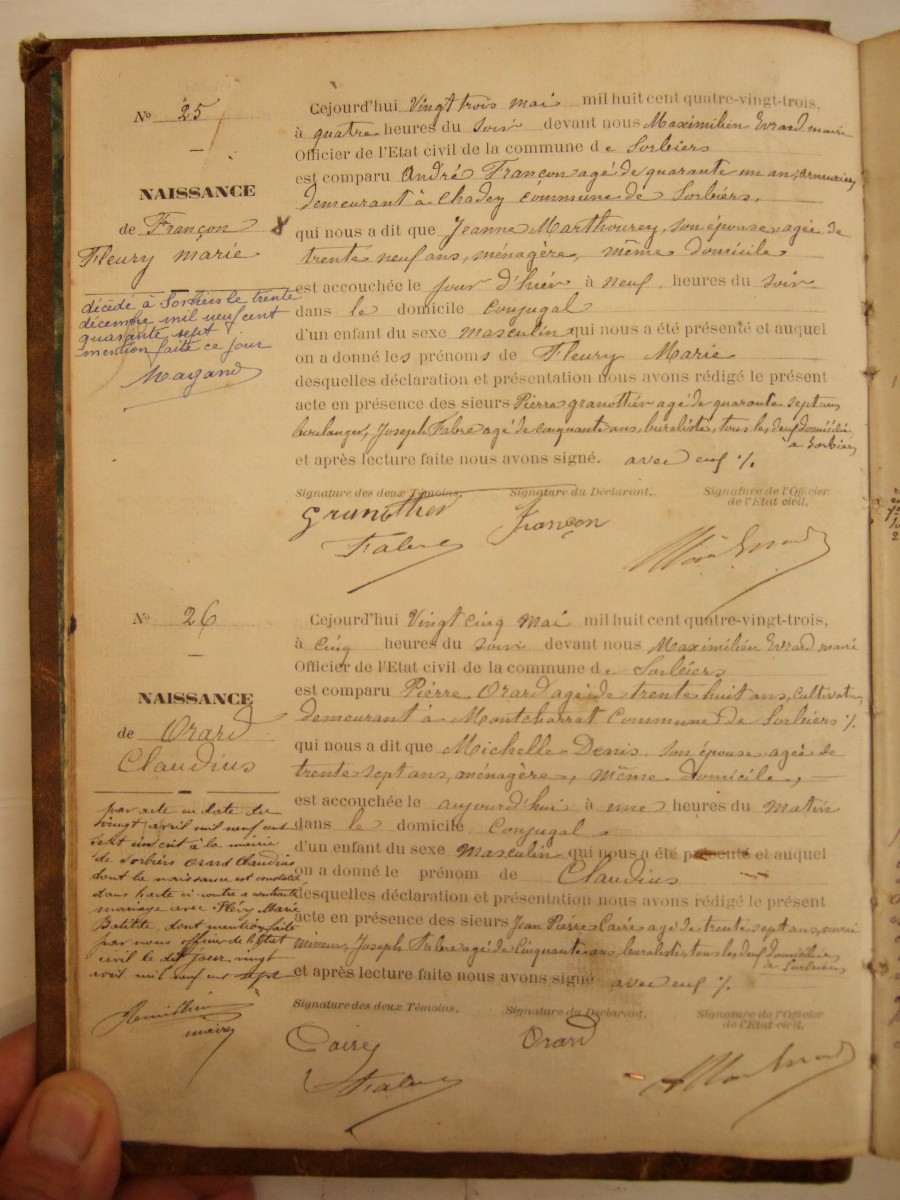 No 25
NAISSANCE
de Françon
Fleury Marie
décédé à Sorbiers le trente
décembre mil neuf cent
quarante sept
mention faite ce jour
Magand
Cejourd'hui Vingt trois mai mil huit cent quatre-vingt-trois,
à quatre heures du soir devant nous Maximilien Evrard maire
Officier de l'Etat civil de la commune de Sorbiers
est comparu André Françon agé de quarante un ans, armurier
demeurant à Chadey Commune de Sorbiers,
qui nous a dit que Jeanne Marthourey, son épouse agée de
trente neuf ans, ménagère, même domicile
est accouchée le jour d'hier à neuf heures du soir
dans le domicile Conjugal
d'un enfant du sexe masculin qui nous a été présenté et auquel
on a donné les prénoms de Fleury Marie
desquelles déclaration et présentation nous avons rédigé le présent
acte en présence des sieurs Pierre granottier agé de quarante sept ans
boulanger, Joseph Fabre agé de cinquante ans, buraliste, tous les deux domiciliés
à Sorbiers
et après lecture faite nous avons signé. avec eux %
Signature des deux Témoins. Signature du Déclarant. Signature de l'Officier
de l'Etat civil.
Granottier Françon
Fabre
No 26
NAISSANCE
de Orard
Claudius
par acte en date du
vingt avril mil neuf cent
sept inscrit à la mairie
de Sorbiers Orard Claudius
dont la naissance est constatée
dans l'acte ci-contre a contracté
mariage avec Fleury Marie
dont mention faite
par nous officier de l'Etat
civil le dit jour vingt
avril mil neuf cent sept
maire
Cejourd'hui Vingt cinq mai mil huit cent quatre-vingt-trois,
à cinq heures du soir devant nous Maximilien Evrard maire
Officier de l'Etat civil de la commune de Sorbiers
est comparu Pierre Orard agé de trente huit ans, Cultivateur,
demeurant à Montcharrat Commune de Sorbiers %
qui nous a dit que Michelle Denis, son épouse agée de
trente sept ans, ménagère, même domicile,
est accouchée le aujourd'hui à une heures du matin
dans le domicile Conjugal
d'un enfant du sexe masculin qui nous a été présenté et auquel
on a donné le prénom de Claudius
desquelles déclaration et présentation nous avons rédigé le présent
acte en présence des sieurs Jean Pierre Caire agé de trente sept ans, ouvrier
mineur, Joseph Fabre agé de Cinquante ans, buraliste, tous les deux domiciliés
à Sorbiers
et après lecture faite nous avons signé avec eux %
Signature des deux Témoins. Signature du Déclarant. Signature de l'Officier
de l'Etat civil.
Orard
Fabre